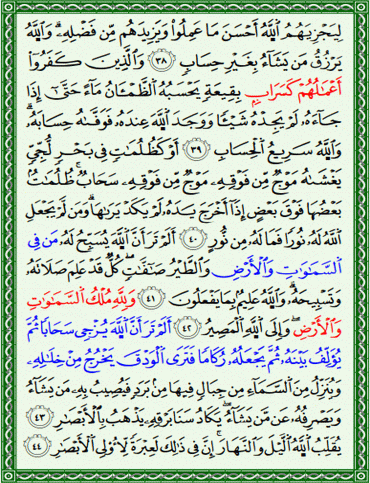 لِيَجْزِيَهُمُ ٱللَّهُ أَحْسَنَ مَا عَمِلُوا۟ وَيَزِيدَهُم مِّن فَضْلِهِۦ ۗ وَٱللَّهُ
يَرْزُقُ مَن يَشَآءُ بِغَيْرِ حِسَابٍ ٣٨ وَٱلَّذِينَ كَفَرُوٓا۟
أَعْمَٰلُهُمْ كَسَرَابٍۭ بِقِيعَةٍ يَحْسَبُهُ ٱلظَّمْـَٔانُ مَآءً حَتَّىٰٓ إِذَا
جَآءَهُۥ لَمْ يَجِدْهُ شَيْـًٔا وَوَجَدَ ٱللَّهَ عِندَهُۥ فَوَفَّىٰهُ حِسَابَهُۥ ۗ
وَٱللَّهُ سَرِيعُ ٱلْحِسَابِ ٣٩ أَوْ كَظُلُمَٰتٍ فِى بَحْرٍ لُّجِّىٍّ
يَغْشَىٰهُ مَوْجٌ مِّن فَوْقِهِۦ مَوْجٌ مِّن فَوْقِهِۦ سَحَابٌ ۚ ظُلُمَٰتٌۢ
بَعْضُهَا فَوْقَ بَعْضٍ إِذَآ أَخْرَجَ يَدَهُۥ لَمْ يَكَدْ يَرَىٰهَا ۗ وَمَن لَّمْ يَجْعَلِ
ٱللَّهُ لَهُۥ نُورًا فَمَا لَهُۥ مِن نُّورٍ ٤٠ أَلَمْ تَرَ أَنَّ ٱللَّهَ يُسَبِّحُ لَهُۥ مَن فِى
ٱلسَّمَٰوَٰتِ وَٱلْأَرْضِ وَٱلطَّيْرُ صَٰٓفَّٰتٍ ۖ كُلٌّ قَدْ عَلِمَ صَلَاتَهُۥ
وَتَسْبِيحَهُۥ ۗ وَٱللَّهُ عَلِيمٌۢ بِمَا يَفْعَلُونَ ٤١ وَلِلَّهِ مُلْكُ ٱلسَّمَٰوَٰتِ
وَٱلْأَرْضِ ۖ وَإِلَى ٱللَّهِ ٱلْمَصِيرُ ٤٢ أَلَمْ تَرَ أَنَّ ٱللَّهَ يُزْجِى سَحَابًا ثُمَّ
يُؤَلِّفُ بَيْنَهُۥ ثُمَّ يَجْعَلُهُۥ رُكَامًا فَتَرَى ٱلْوَدْقَ يَخْرُجُ مِنْ خِلَٰلِهِۦ
وَيُنَزِّلُ مِنَ ٱلسَّمَآءِ مِن جِبَالٍ فِيهَا مِنۢ بَرَدٍ فَيُصِيبُ بِهِۦ مَن يَشَآءُ
وَيَصْرِفُهُۥ عَن مَّن يَشَآءُ ۖ يَكَادُ سَنَا بَرْقِهِۦ يَذْهَبُ بِٱلْأَبْصَٰرِ ٤٣
يُقَلِّبُ ٱللَّهُ ٱلَّيْلَ وَٱلنَّهَارَ ۚ إِنَّ فِى ذَٰلِكَ لَعِبْرَةً لِّأُو۟لِى ٱلْأَبْصَٰرِ ٤٤